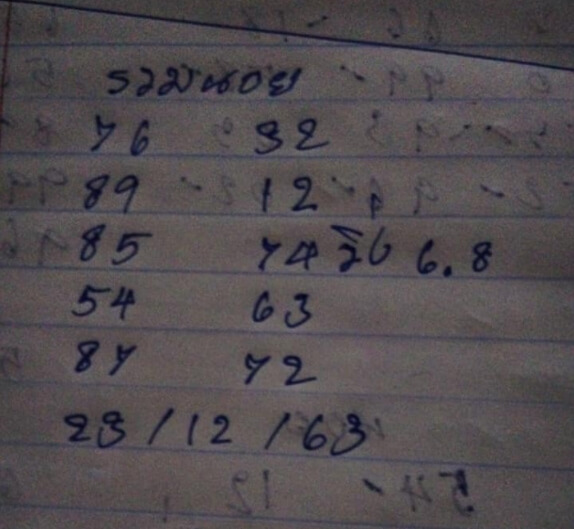 รวมหวย
76 32
89 12
85 74 วิ่ง 6.8
54 63
87 72
23/12/63